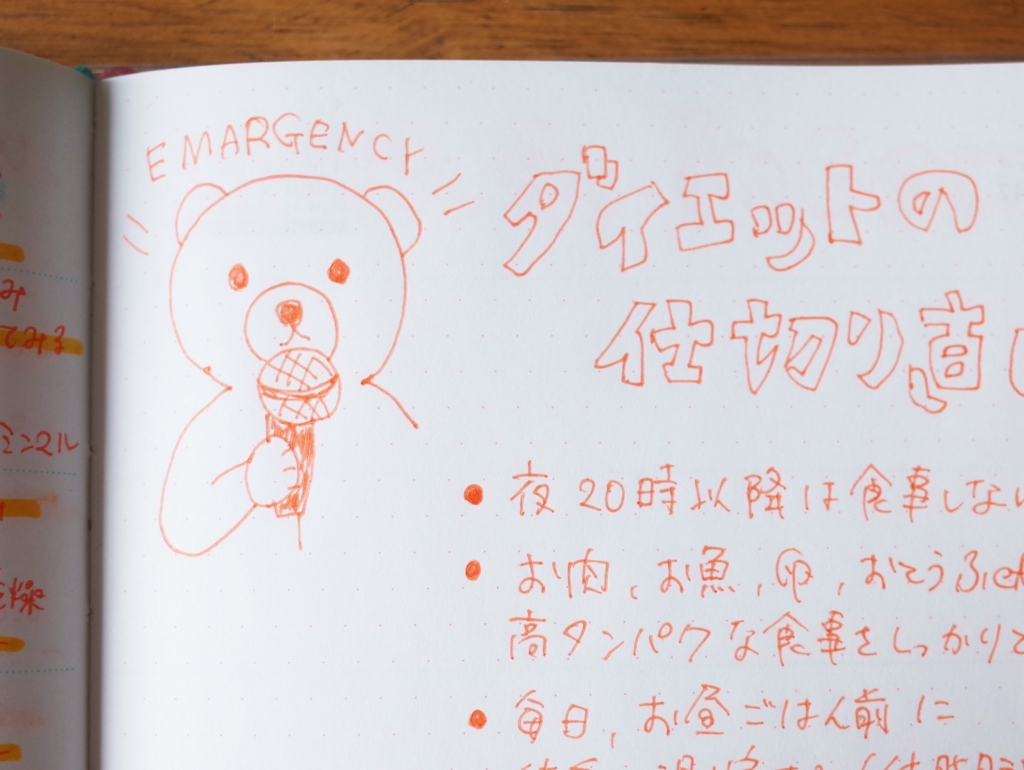 み
てみる
ミンマル
燥
EMARGENCY
ダイエットの
仕切り直し
夜20時以降は食事しない
お肉、お魚、卵、おとうふetc
高タンパクな食事をしっかりと
毎日、お昼ごはん前に